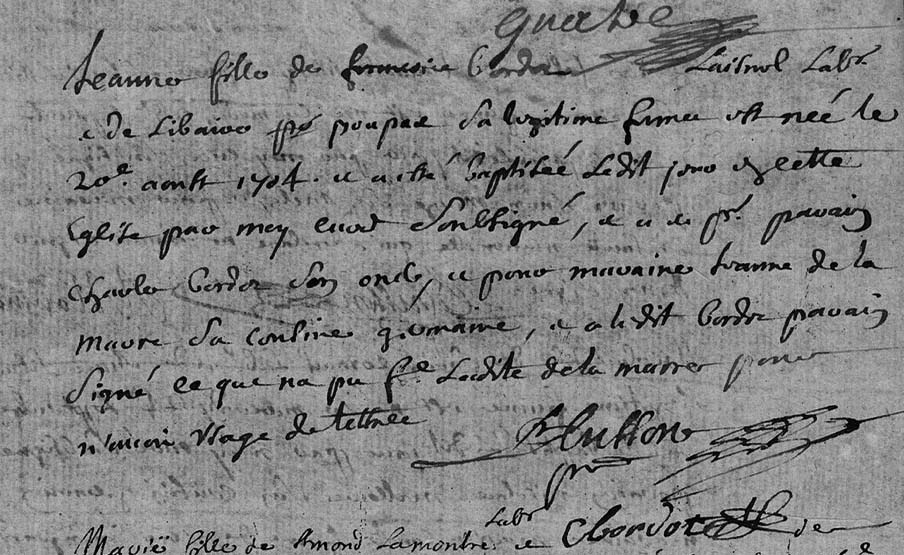 Jeanne fille de francoise bordez Laisnel Labr
e de poupar Sa legitime femme est née le
20e. aoust 1704. et a esté baptiseé Ledit jour en cette
Eglise par moy curé Soubsigné, et a eu pr. parain
Charles bordez son oncle, et pour maraine Jeanne de la
marre Sa cousine germaine, et a ledit bordez parain
Signé ce que na pu fe. Ladite dela marre pour
n'avoir Usage de lettree
Labr Cbordot
Marie fille de Lamontre e de